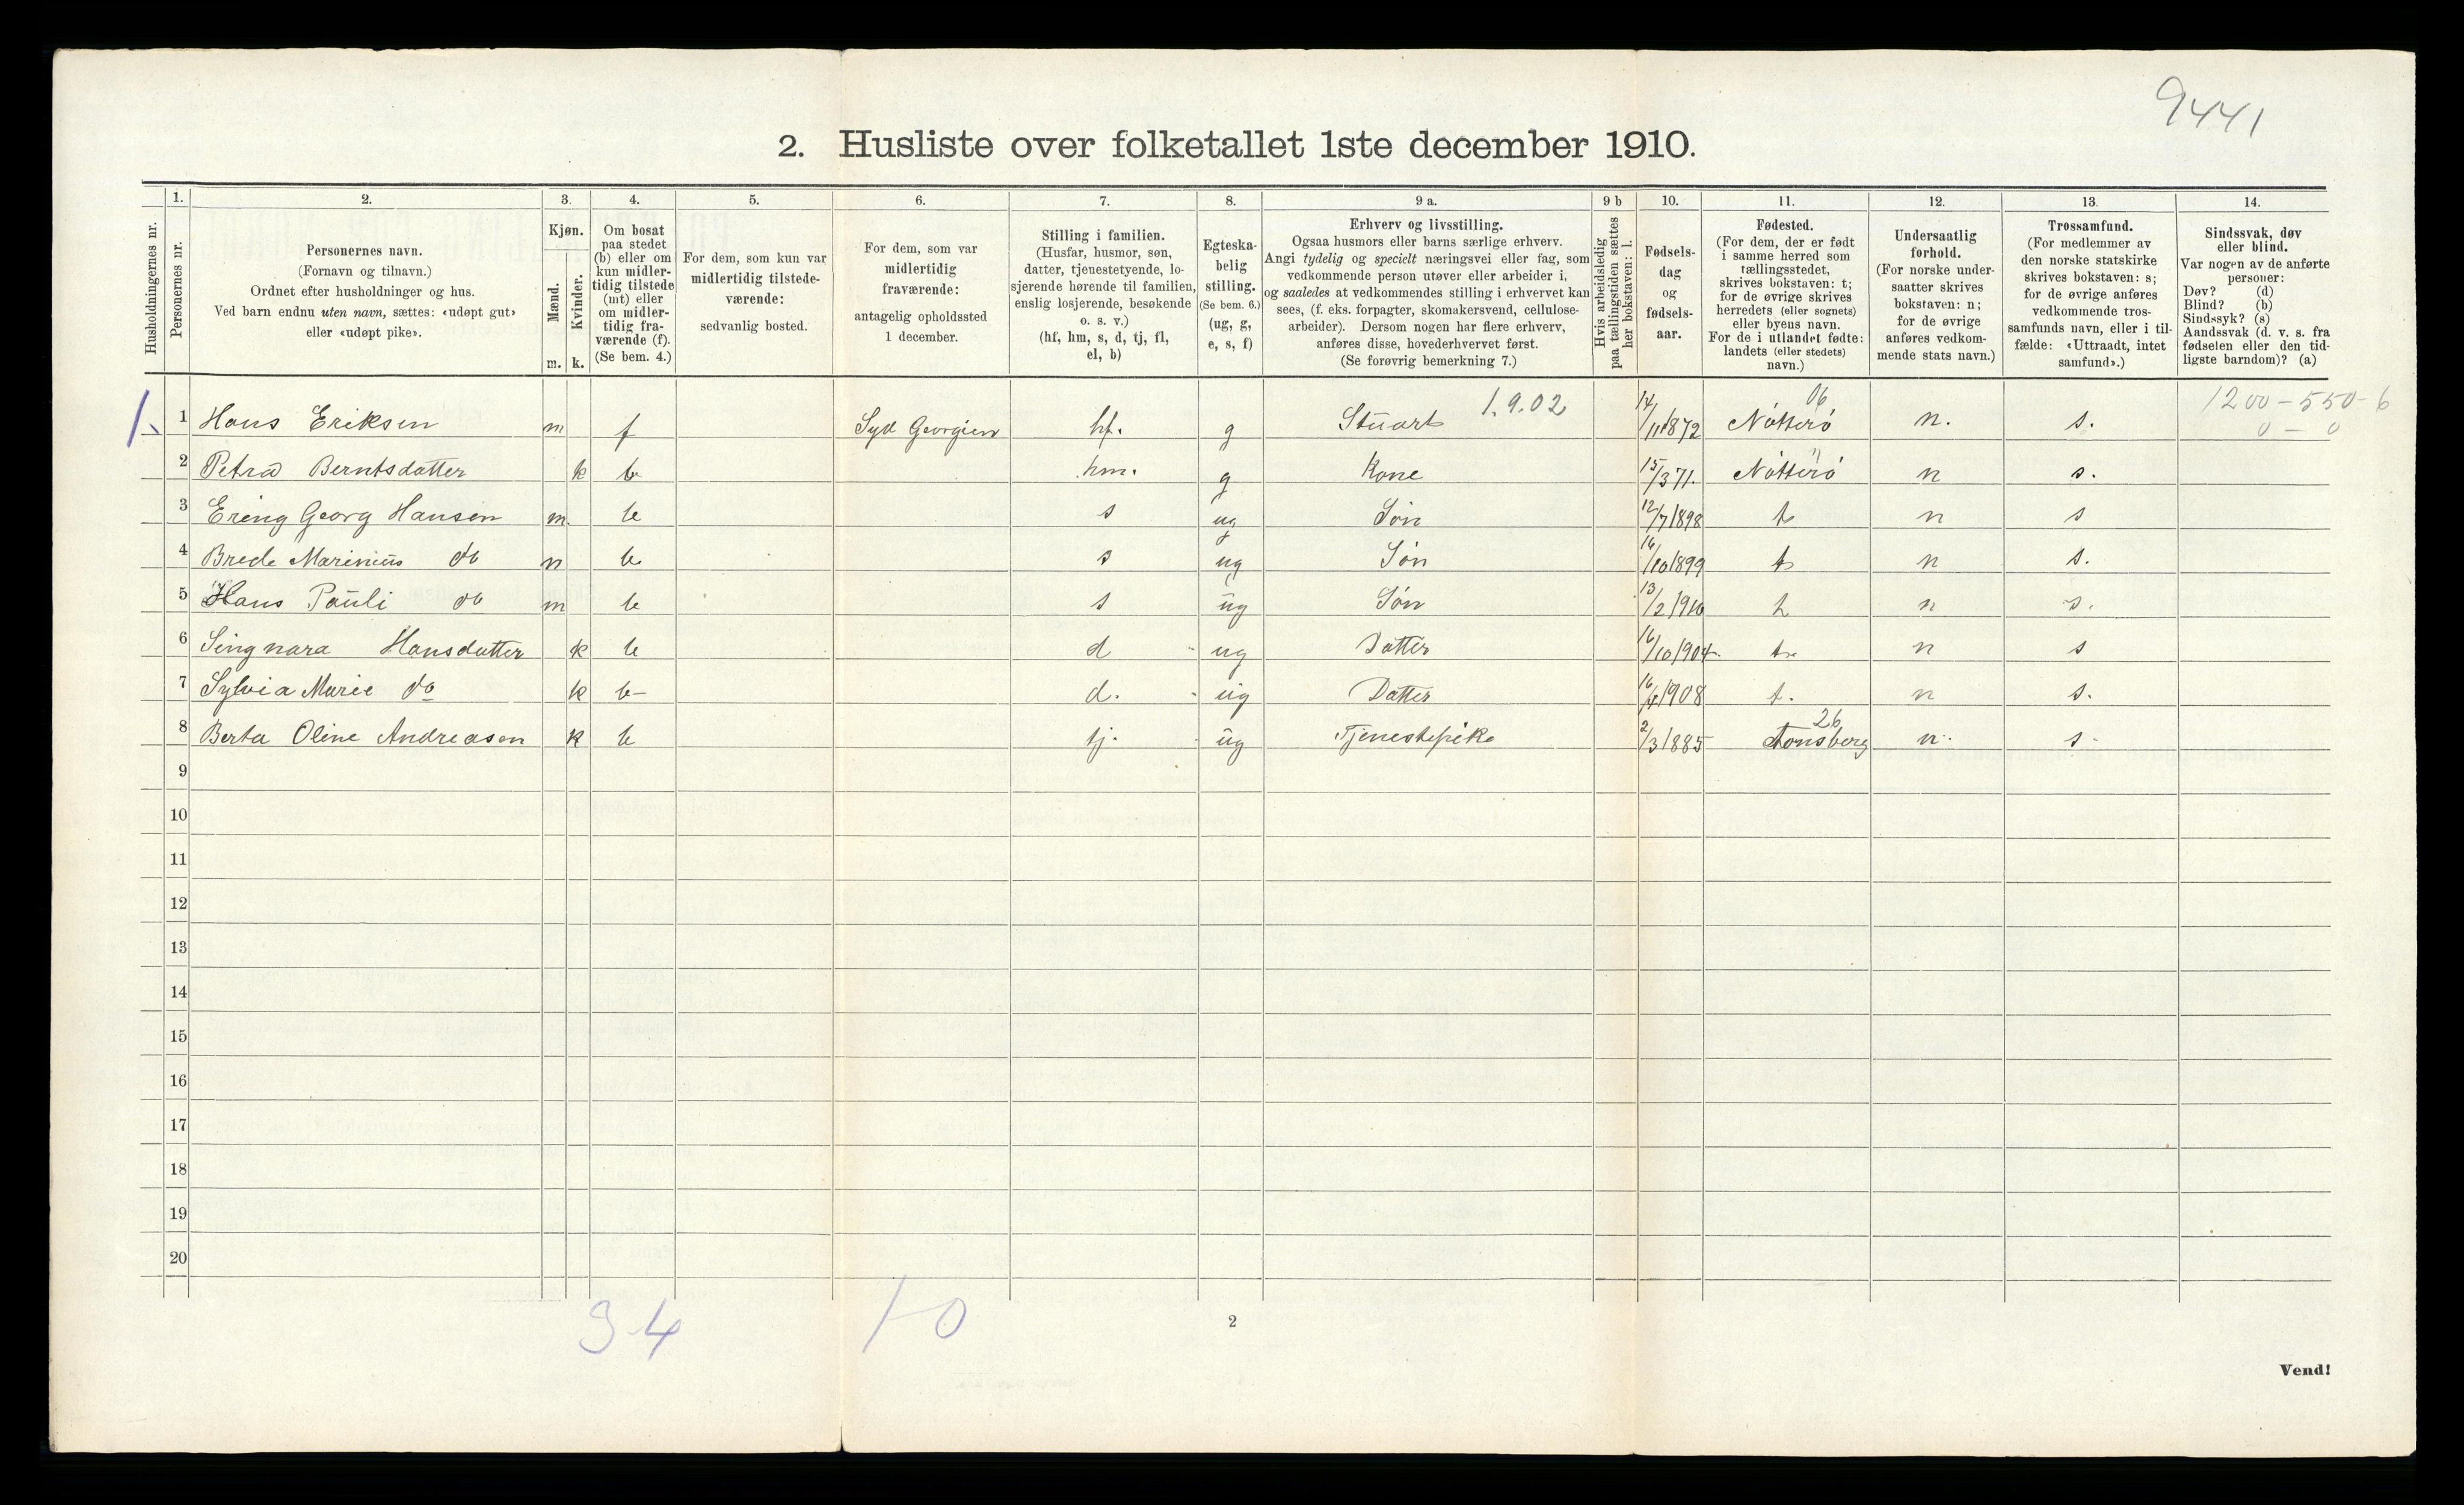 9441
2. Husliste over folketallet 1ste december 1910.
Husholdningernes nr.
1. Personernes nr.
2. Personernes navn. (Fornavn og tilnavn.) Ordnet efter husholdninger og hus. Ved barn endnu uten navn, sættes: «udøpt gut» eller «udøpt pike».
3. Kjøn. Mænd. m. Kvinder. k.
4. Om bosat paa stedet (b) eller om kun midler-tidig tilstede (mt) eller om midler-tidig fra-værende (f). (Se bem. 4.)
5. For dem, som kun var midlertidig tilstede-værende: sedvanlig bosted.
6. For dem, som var midlertidig fraværende: antagelig opholdssted 1 december.
7. Stilling i familien. (Husfar, husmor, søn, datter, tjenestetyende, lo-sjerende hørende til familien, enslig losjerende, besøkende o. s. v.) (hf, hm, s, d, tj, fl, el, b)
8. Egteska-belig stilling. (Se bem. 6.) (ug, g, e, s, f)
9 a. Erhverv og livsstilling. Ogsaa husmors eller barns særlige erhverv. Angi tydelig og specielt næringsvei eller fag, som vedkommende person utøver eller arbeider i, og saaledes at vedkommendes stilling i erhvervet kan sees, (f. eks. forpagter, skomakersvend, cellulose-arbeider). Dersom nogen har flere erhverv, anføres disse, hovederhvervet først. (Se forøvrig bemerkning 7.)
9 b Hvis arbeidsledig paa tællingstiden sættes her bokstaven: l.
10. Fødsels-dag og fødsels-aar.
11. Fødested. (For dem, der er født i samme herred som tællingsstedet, skrives bokstaven: t; for de øvrige skrives herredets (eller sognets) eller byens navn. For de i utlandet fødte: landets (eller stedets) navn.)
12. Undersaatlig forhold. (For norske under-saatter skrives bokstaven: n; for de øvrige anføres vedkom-mende stats navn.)
13. Trossamfund. (For medlemmer av den norske statskirke skrives bokstaven: s; for de øvrige anføres vedkommende tros-samfunds navn, eller i til-fælde: «Uttraadt, intet samfund».)
14. Sindssvak, døv eller blind. Var nogen av de anførte personer: Døv? (d) Blind? (b) Sindssyk? (s) Aandssvak (d. v. s. fra fødselen eller den tid-ligste barndom)? (a)
1.9.02 06 1200-550-6
1. 1 Hans Eriksen m f Syd Georgien hf. g Stuart 14/11 1872 Nötterö n. s. 0 - 0
2 Petra Berntsdatter k b hm. g Kone 15/3 71. Nötterö n s.
3 Ering Georg Hansen m b s ug Søn 12/7 1898 t n s
4 Brede Marinius do m b. s ug Søn 16/10 1899 t n s.
5 Hans Pauli do m b s ug Søn 13/2 1910 t n s.
6 Singnara Hansdatter k b d ug Datter 16/10 1904 t n s
7 Sylvia Marie do k b d. ug Datter 16/4 1908 t. n s.
26
8 Berta Oline Andreasen k b tj. ug Tjenestepike 2/3 1885 Tønsberg n s
9
10
11
12
13
14
15
16
17
18
19
20
3-4 1-0
2
Vend!